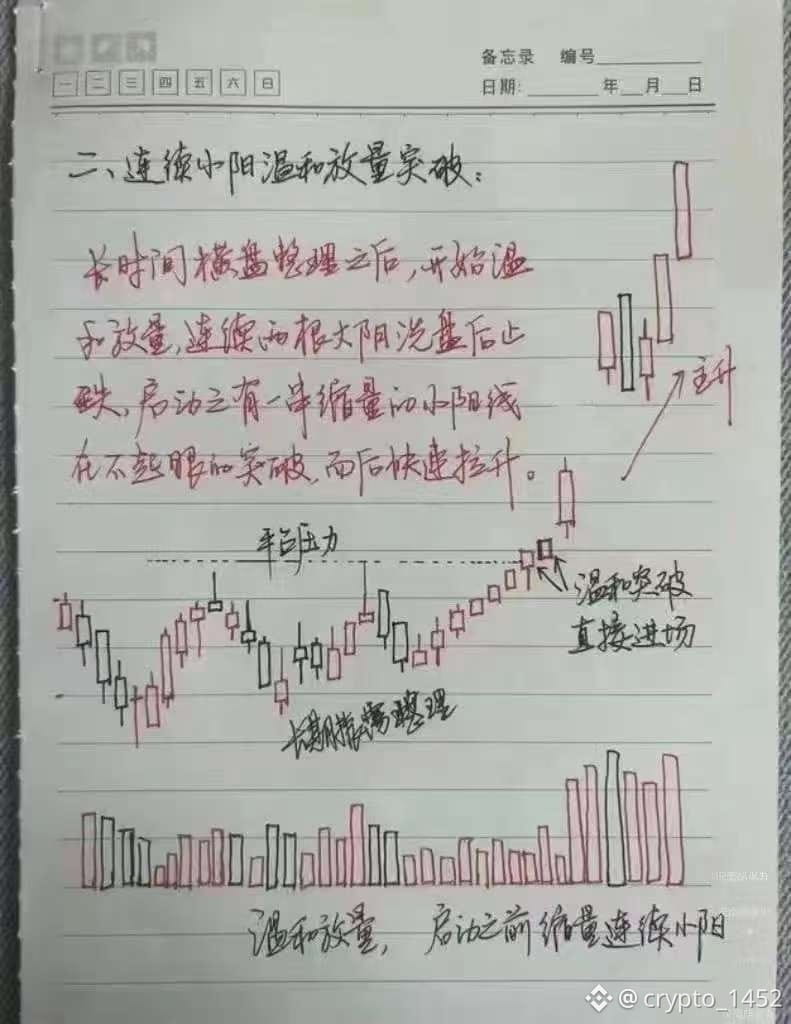 备忘录 编号
一 二 三 四 五 六 日
日期: 年 月 日
二、连续小阳温和放量突破：
长时间横盘整理之后，开始温
和放量，连续两根大阴洗盘后止
跌，启动之有一串缩量的小阳线
在不起眼的突破，而后快速拉升。
主升
平台压力
温和突破
直接进场
长期震荡整理
温和放量，启动之前缩量连续小阳
@crypto_1452